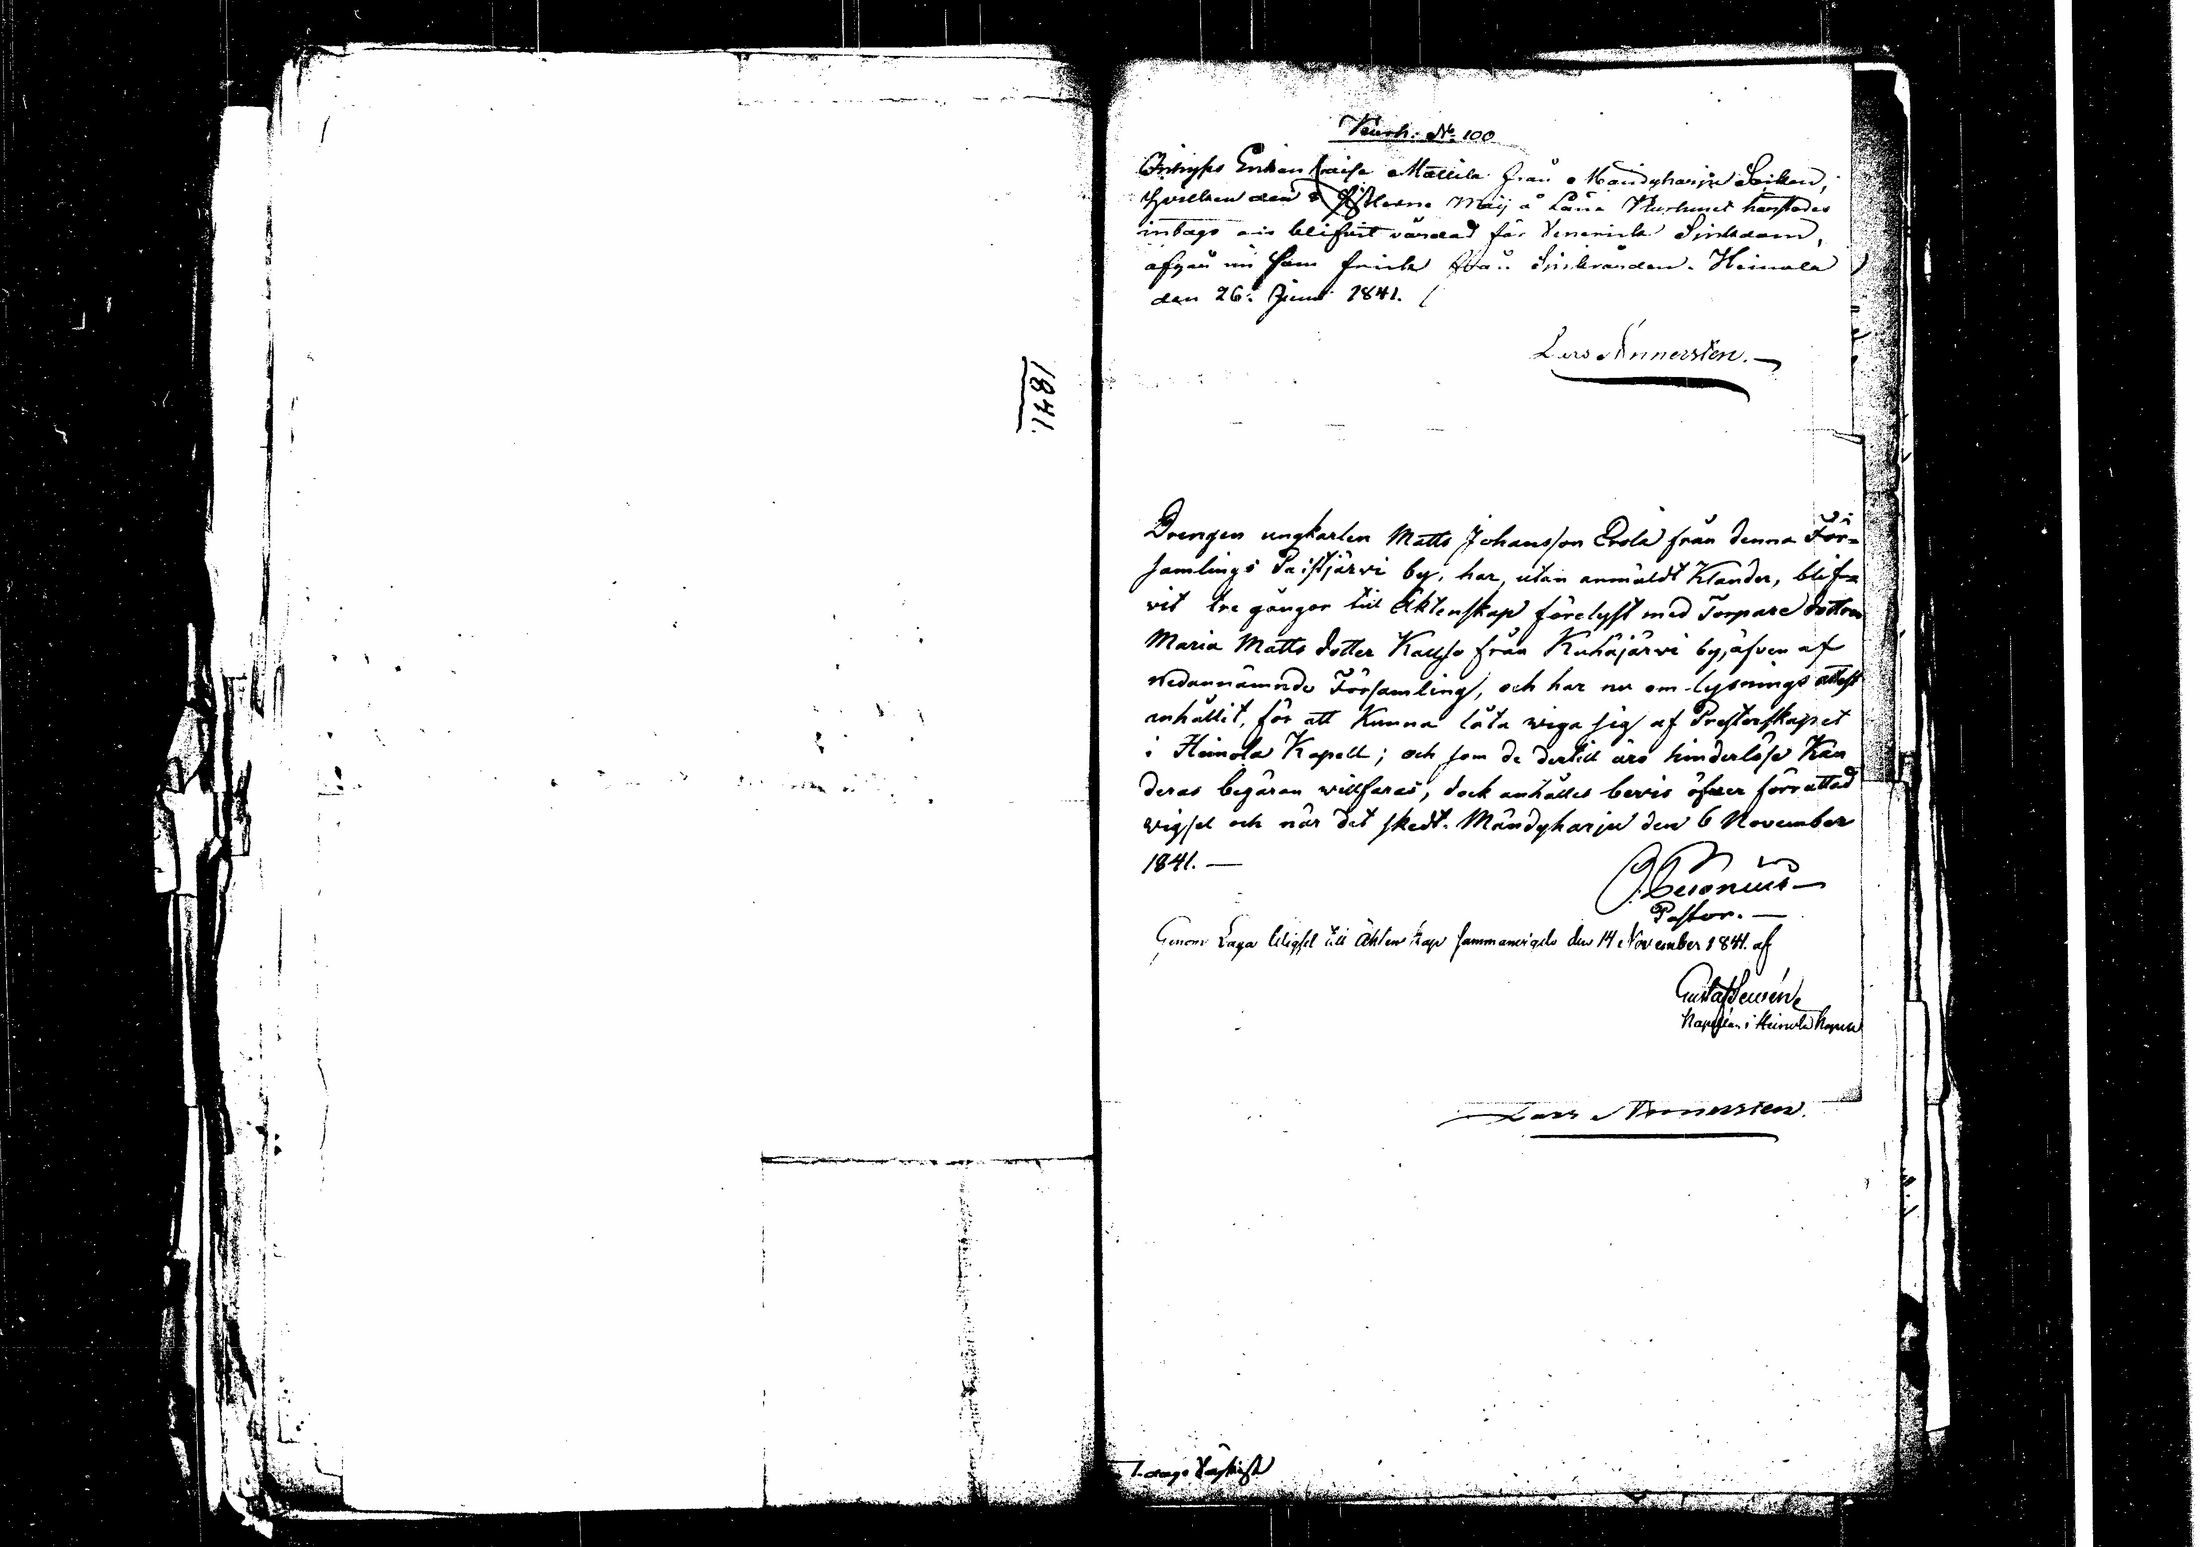 1841.
Kurh. No 100
Enkan Caisa Mattila från Mändyharju Socken,
hvilken den sistledne Maij å Läne Kurhuset härstädes
intage och blifvit vårdad för Venerisk Sjukdom,
afgår nu som frisk från Sjukvården. Heinola
den 26: Junii 1841.
Lars
Drengen ungkarlen Matts Johansson Erola från denna För-
samlings Paistjärvi by, har, utan anmäldt Klander, blif-
vit tre gångor till Äktenskap förelyst med Torpare dottren
Maria Matts dotter Kausso från Kuhajärvi by, äfven af
nedannämnde Församling, och har nu om lysnings attest
anhållit, för att Kunna låta wiga sig af Presterskapet
i Heinola Kapell; och som de dertill äro hinderlöse Kan
deras begäran willfaras, dock anhålles bevis öfwer förrättad
wigsel och när det skedt. Mändyharju den 6 November
1841. —
Pastor. —
Genom Laga Wigsel till Äktenskap sammanvigde den 14 November 1841. af
Gustaf
Kapellan i Heinola Kapell
Lars